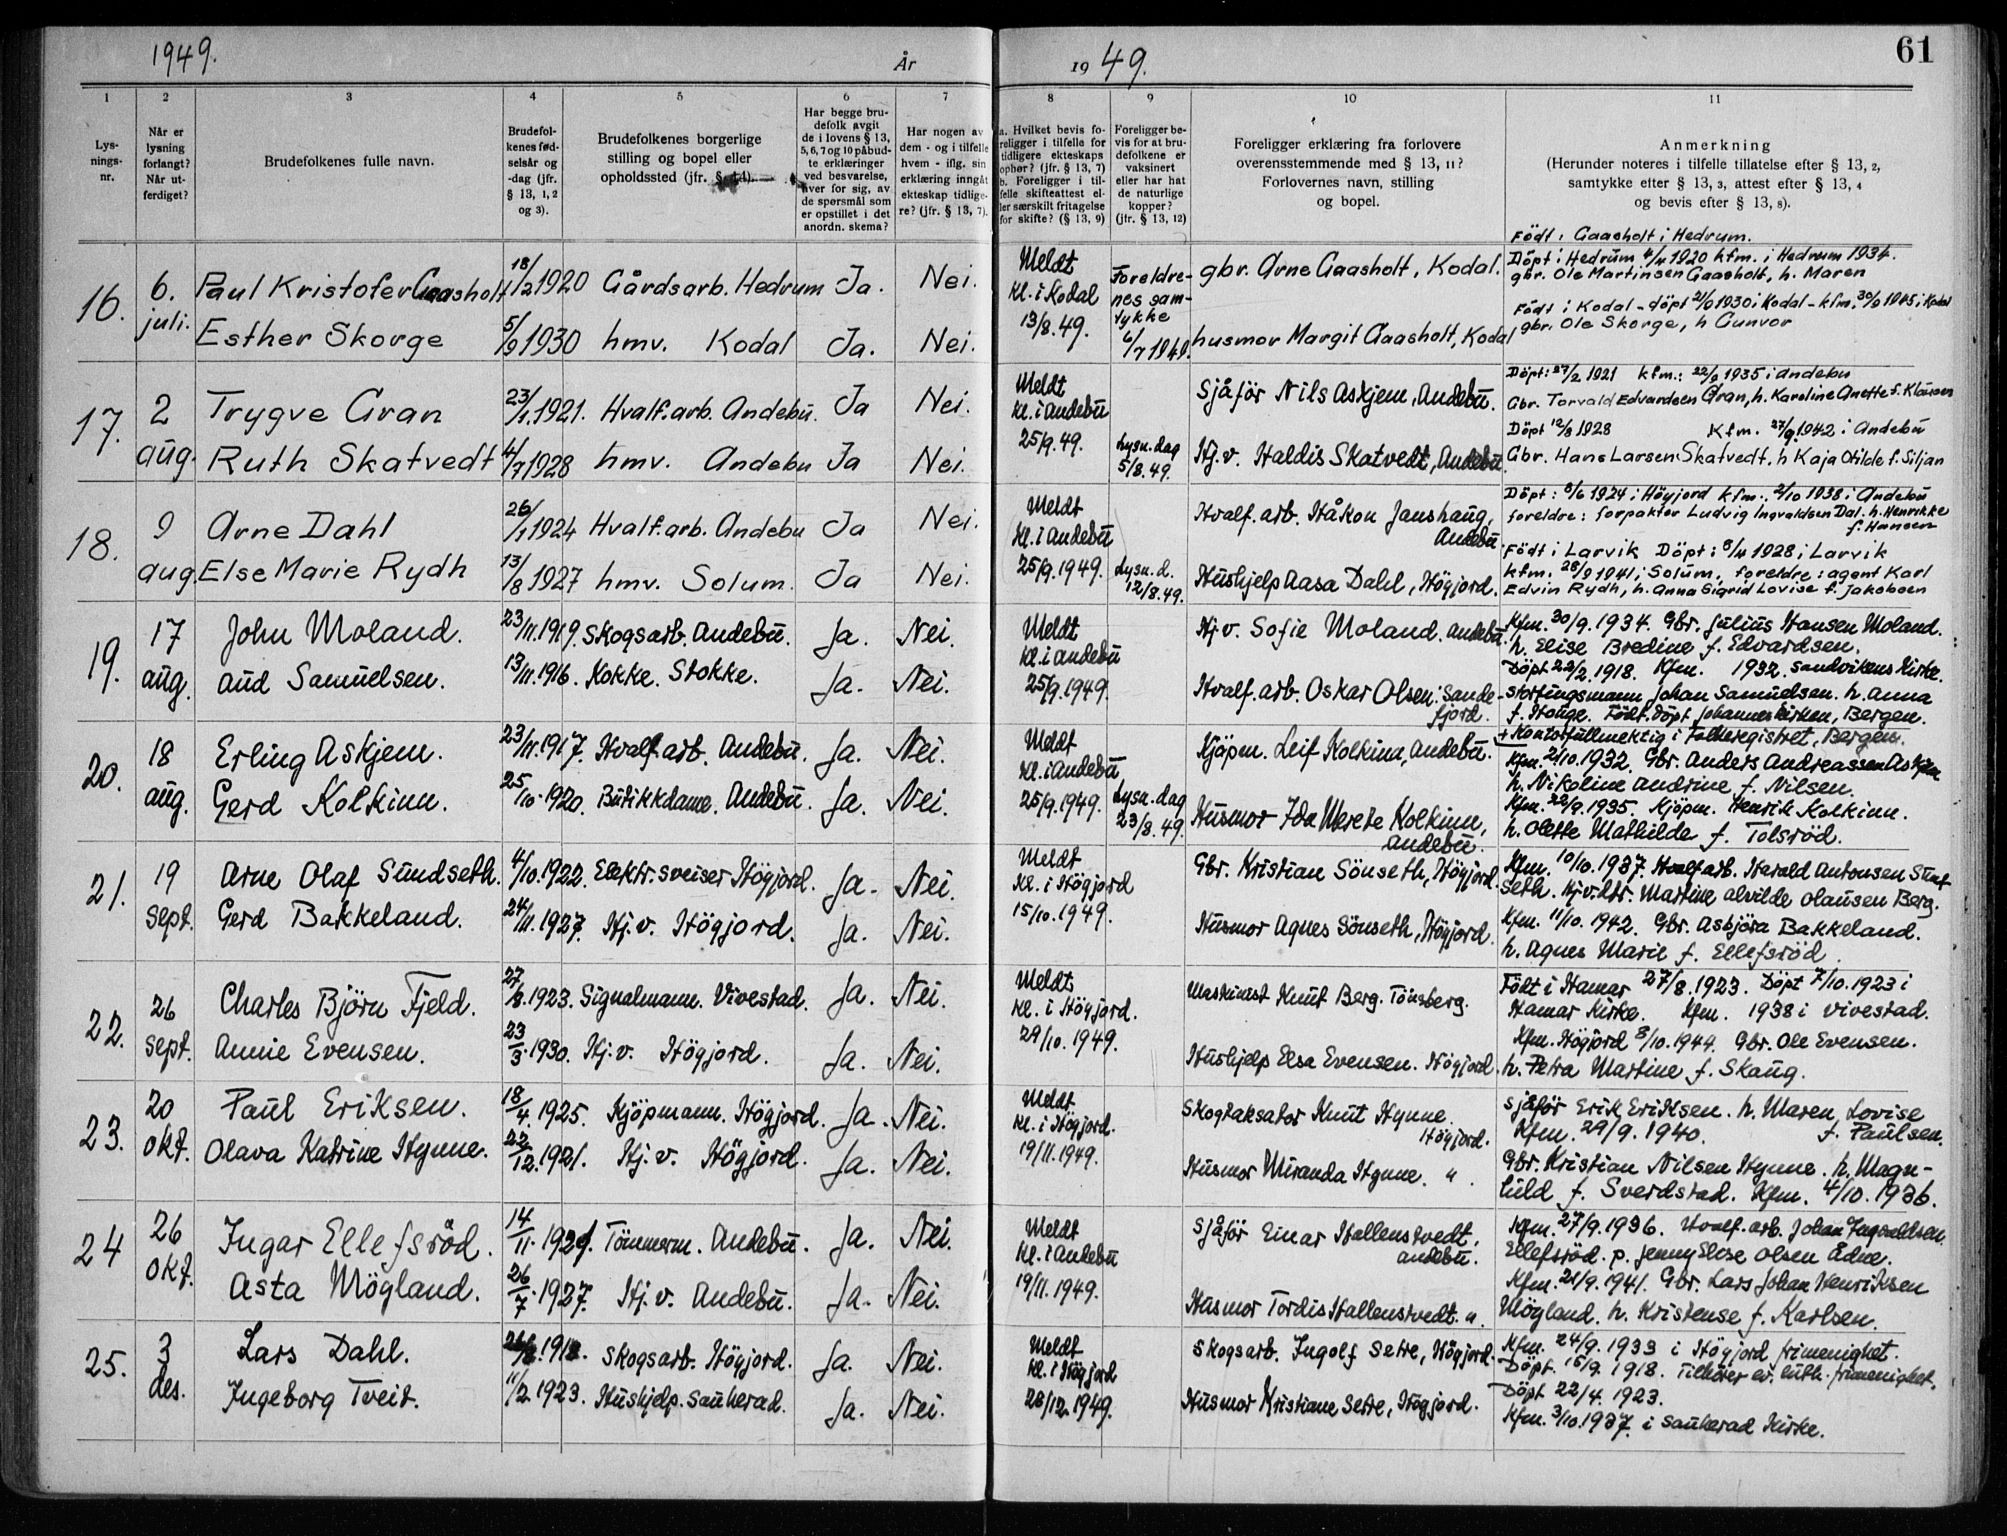 1949.
År
19 49.
61
1
2
3
4
5
6
7
8
9
10
11
Lys-
nings-
nr.
Når er
lysning
forlangt?
Når ut-
ferdiget?
Brudefolkenes fulle navn.
Brudefol-
kenes fød-
selsår og
-dag (jfr.
§ 13, 1, 2
og 3).
Brudefolkenes borgerlige
stilling og bopel eller
opholdssted (jfr. § 14).
Har begge bru-
defolk avgit
de i lovens § 13,
5, 6, 7 og 10 påbud-
te erklæringer
ved besvarelse,
hver for sig, av
de spørsmål som
er opstillet i det
anordn. skema?
Har nogen av
dem - og i tilfelle
hvem - iflg. sin
erklæring inngåt
ekteskap tidlige-
re? (jfr. § 13, 7).
a. Hvilket bevis fo-
religger i tilfelle for
tidligere ekteskaps
ophør? (jfr. § 13, 7)
b. Foreligger i til-
felle skifteattest el-
ler særskilt fritagelse
for skifte? (§ 13, 9)
Foreligger be-
vis for at bru-
defolkene er
vaksinert
eller har hat
de naturlige
kopper?
(jfr. § 13, 12)
Foreligger erklæring fra forlovere
overensstemmende med § 13, 11?
Forlovernes navn, stilling
og bopel.
Anmerkning
(Herunder noteres i tilfelle tillatelse efter § 13, 2,
samtykke efter § 13, 3, attest efter § 13, 4
og bevis efter § 13, 8).
16.
6.
juli.
Paul Kristofer Gaasholt
18/2 1920
Gårdsarb. Hedrum
Ja.
Nei.
Esther Skorge
5/9 1930
hmv. Kodal
Ja.
Nei.
Meldt
kl. i Kodal
13/8. 49.
Foreldre-
nes sam-
tykke
6/7 1949.
gbr. Arne Gaasholt, Kodal.
husmor Margit Gaasholt, Kodal
Född i Gaasholt i Hedrum.
Döpt i Hedrum 4/4 1920 kfm. i Hedrum 1934.
gbr. Ole Martinsen Gaasholt, h. Maren
Född i Kodal - döpt 21/9 1930 i Kodal - kfm. 30/9 1945 i Kodal
gbr. Ole Skorge, h Gunvor
17.
2
aug.
Trygve Gran
23/1. 1921.
Hvalf.arb. Andebu.
Ja
Nei.
Ruth Skatvedt
4/7 1928
hmv. Andebu
Ja
Nei.
Meldt
kl. i Andebu
25/9. 49.
Lysn. dag
5/8. 49.
Sjåför Nils Askjem, Andebu.
Hj. v. Haldis Skatvedt, Andebu
Döpt: 27/2 1921 kfm.: 22/9 1935 i Andebu
Gbr. Torvald Edvardsen Gran, h. Karoline Anette f. Klausen
Döpt 12/8 1928 Kfm. 27/9. 1942 i Andebu
Gbr. Hans Larsen Skatvedt, h Kaja Otilde f. Siljan
18.
9
aug.
Arne Dahl
26/1 1924
Hvalf.arb. Andebu
Ja
Nei.
Else Marie Rydh
13/8 1927
hmv. Solum.
Ja
Nei.
Meldt
kl. i Andebu
25/9. 1949.
Lysn. d.
12/8. 49.
Hvalf. arb. Håkon Janshaug,
Andebu
Hushjelp Aasa Dahl, Högjord.
Döpt: 8/6 1924 i Högjord kfm. 2/10 1938 i Andebu
foreldre: forpakter Ludvig Ingvaldsen Dal. h. Henrikke
f. Hansen
Född i Larvik Döpt: 8/4 1928 i Larvik
kfm. 28/9 1941 i Solum, foreldre: agent Karl
Edvin Rydh, h. Anna Sigrid Lovise f. Jakobsen
19.
17
aug.
John Moland.
23/11. 1919.
Skogsarb. Andebu.
Ja.
Nei.
Aud Samuelsen.
13/11. 1916.
Kokke. Stokke.
Ja.
Nei.
Meldt
kl. i Andebu
25/9. 1949.
Hj v. Sofie Moland. Andebu.
Hvalf. arb. Oskar Olsen. Sande-
fjord.
Kfm. 30/9. 1934. Gbr. Julius Hansen Moland.
h. Elise Bredine f. Edvardsen.
Döpt 22/2. 1918. Kfm. 1932. Sandvikens Kirke.
Stortingsmann Johan Samuelsen. h. Anna
f. Hauge. Född. döpt Johanneskirken, Bergen.
+ Kontorfullmektig i Folkeregistret, Bergen.
20.
18
aug.
Erling Askjem.
23/11. 1917.
Hvalf. arb. Andebu.
Ja.
Nei.
Gerd Kolkinn.
25/10. 1920.
Butikkdame. Andebu.
Ja.
Nei.
Meldt
kl. i Andebu
25/9. 1949.
Lysn. dag
23/8. 49.
Kjöpm. Leif Kolkinn, Andebu.
Husmor Ida Merete Kolkinn,
Andebu.
Kfm. 2/10. 1932. Gbr. Anders Andreassen Askjem
h. Nikoline Andrine f. Nilsen.
Kfm. 22/9. 1935. Kjöpm. Henrik Kolkinn.
h. Olette Mathilde f. Tolsröd.
21.
19
sept.
Arne Olaf Sundseth.
4/10. 1922.
Elektr. sveiser Högjord.
Ja.
Nei.
Gerd Bakkeland.
24/11. 1927.
Hj. v. Högjord.
Ja.
Nei.
Meldt
kl. i Högjord
15/10. 1949.
Gbr. Kristian Sönseth, Högjord.
Husmor Agnes Sönseth, Högjord.
Kfm. 10/10. 1937. Hvalfarb. Harald Antonsen Sund
seth. Hj v. ktr. Martine Alvilde Olausen Berg.
Kfm. 11/10. 1942. Gbr. Asbjörn Bakkeland.
h. Agnes Marie f. Ellefsröd.
22.
26
sept.
Charles Björn Fjeld.
27/8. 1923.
Signalmann. Vivestad.
Ja.
Nei.
Annie Evensen.
23/3. 1930.
Hj. v. Högjord.
Ja.
Nei.
Meldt
kl. i Högjord.
29/10. 1949.
Maskinist Knut Berg. Tönsberg.
Hushjelp Elsa Evensen. Högjord.
Född i Hamar 27/8. 1923. Döpt 7/10. 1923 i
Hamar Kirke. Kfm. 1938 i Vivestad.
Kfm. Högjord 8/10. 1944. Gbr. Ole Evensen.
h. Petra Martine f. Skaug.
23.
20
okt.
Paul Eriksen.
18/4. 1925.
Kjöpmann. Högjord.
Ja.
Nei.
Olava Katrine Hynne.
22/12. 1921.
Hj. v. Högjord.
Ja.
Nei.
Meldt
kl. i Högjord.
19/11. 1949.
Skogtaksator Knut Hynne.
Högjord.
Husmor Miranda Hynne. " .
Sjåför Erik Eriksen. h. Maren Lovise
Kfm. 29/9. 1940. f. Paulsen.
Gbr. Kristian Nilsen Hynne. h. Magn-
hild f. Sverdstad. Kfm. 4/10. 1936.
24
26
okt.
Ingar Ellefsröd.
14/11. 1921.
Tömmerm. Andebu.
Ja.
Nei.
Asta Mögland.
26/7. 1927.
Hj. v. Andebu.
Ja.
Nei.
Meldt
kl. i Andebu
19/11. 1949.
Sjåför Einar Hallenstvedt,
Andebu.
Husmor Tordis Hallenstvedt. ".
Kfm. 27/9. 1936. Hvalf. arb. Johan Ingvaldsen
Ellefsröd. p. Jenny Elise Olsen Ådne.
Kfm. 21/9. 1941. Gbr. Lars Johan Henriksen
Mögland. h. Kristense f. Karlsen.
25.
3
des.
Lars Dahl.
Skogsarb. Högjord.
Ja.
Nei.
Ingeborg Tveit.
11/2. 1923.
Hushjelp. Sauherad.
Ja.
Nei.
Meldt
kl. i Högjord
28/12. 1949.
Skogsarb. Ingolf Setre, Högjord.
Husmor Kristiane Setre, Högjord.
Kfm. 24/9. 1933 i Högjord frimenighet.
Döpt. 15/9. 1918. Tilhörer ev. luth. frimenighet.
Döpt 22/4. 1923.
Kfm. 3/10. 1937. i Sauherad Kirke.